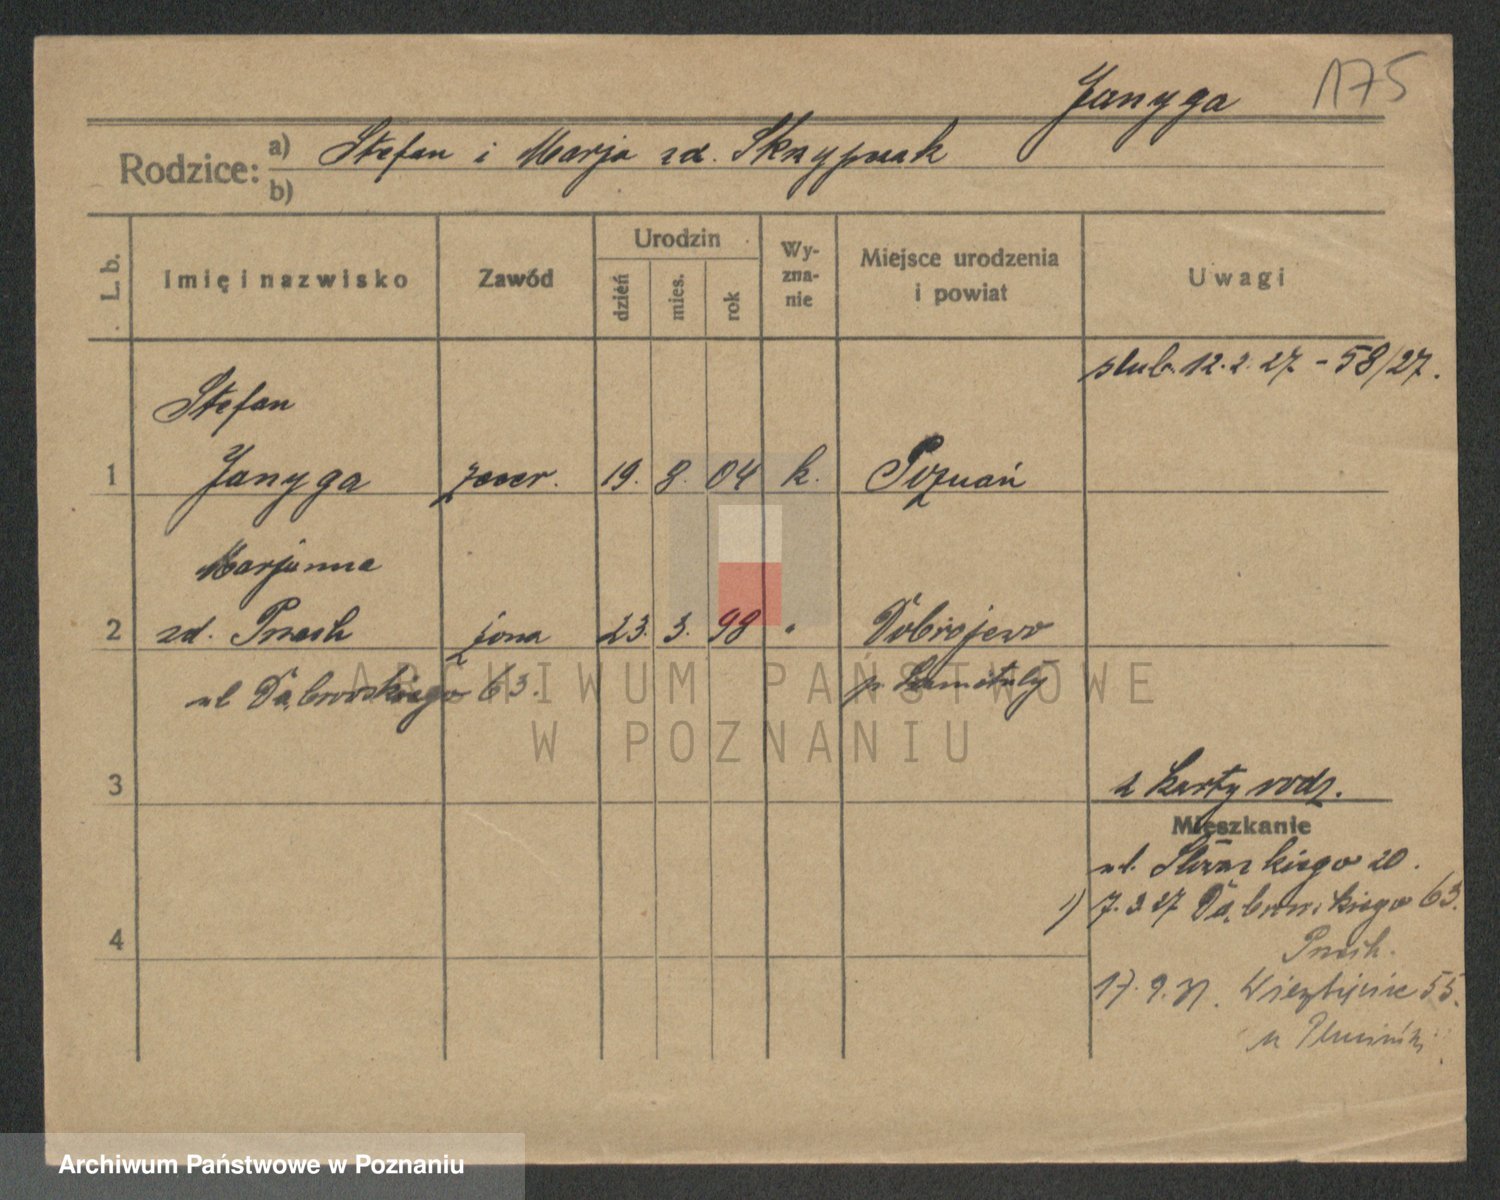 Janyga 175
Rodzice: a) Stefan i Marja zd. Skrzypczak
b)
L. b. Imię i nazwisko Zawód Urodzin dzień mies. rok Wyznanie Miejsce urodzenia i powiat Uwagi
ślub. 12. 2. 27 - 58/27.
Stefan
1 Janyga zecer. 19. 8. 04 k. Poznań
Marjanna
2 zd. Piasek żona 23. 3. 98 " Dobrojewo
ul Dąbrowskiego 63. p. Szamotuły
3 z karty rodz.
Mieszkanie
ul. 20.
1) 7. 3. 27 Dąbrowskiego 63.
4
17. 9. 31. Wierzbięcice 55.
u
ARCHIWUM PAŃSTWOWE
W POZNANIU
Archiwum Państwowe w Poznaniu